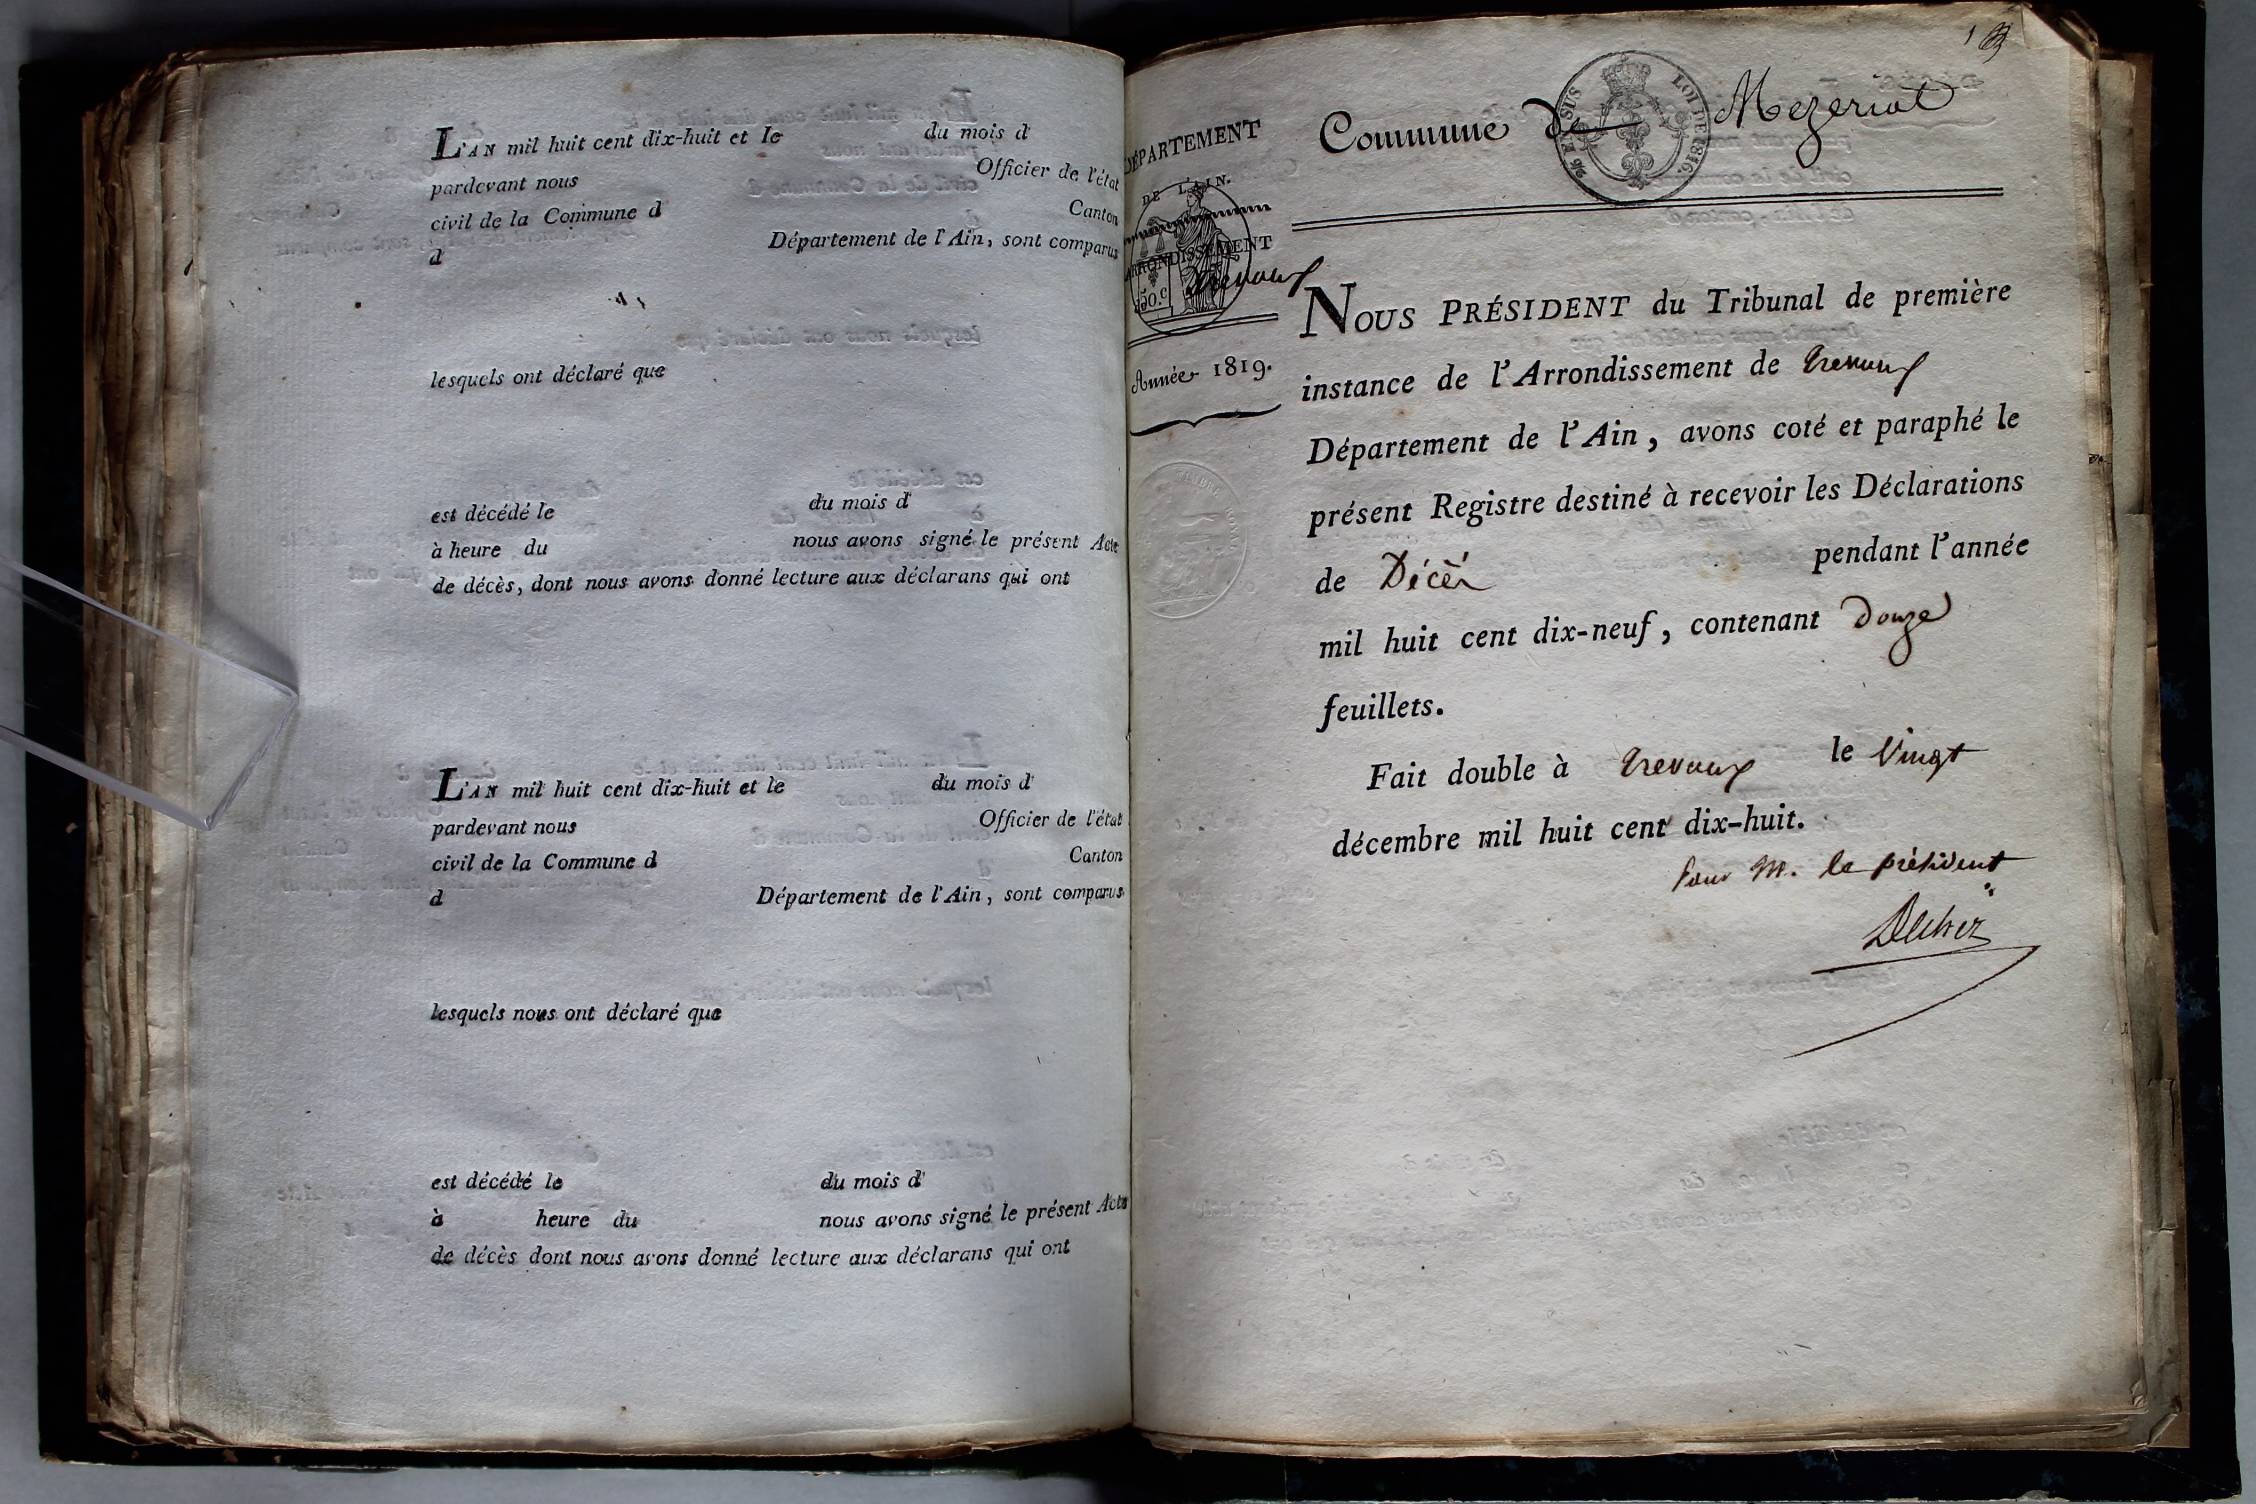 L'AN mil huit cent dix-huit et le du mois d
pardevant nous Officier de l'état
civil de la Commune d Canton
d Département de l'Ain, sont comparus
lesquels ont déclaré que
est décédé le du mois d
à heure du nous avons signé le présent Acte
de décès, dont nous avons donné lecture aux déclarans qui ont
L'AN mil huit cent dix-huit et le du mois d
pardevant nous Officier de l'état
civil de la Commune d Canton
d Département de l'Ain, sont comparus
lesquels nous ont déclaré que
est décédé le du mois d
à heure du nous avons signé le présent Acte
de décès dont nous avons donné lecture aux déclarans qui ont
1
DÉPARTEMENT
DE L'AIN.
ARRONDISSEMENT
Trevoux
50.c
Année 1819.
TIMBRE ROYAL
Commune de Mezeriat
LOI DE 1816.
NOUS PRÉSIDENT du Tribunal de première
instance de l'Arrondissement de Trevoux
Département de l'Ain, avons coté et paraphé le
présent Registre destiné à recevoir les Déclarations
de Décès pendant l'année
mil huit cent dix-neuf, contenant Douze
feuillets.
Fait double à Trevoux le Vingt
décembre mil huit cent dix-huit.
Pour M. le président